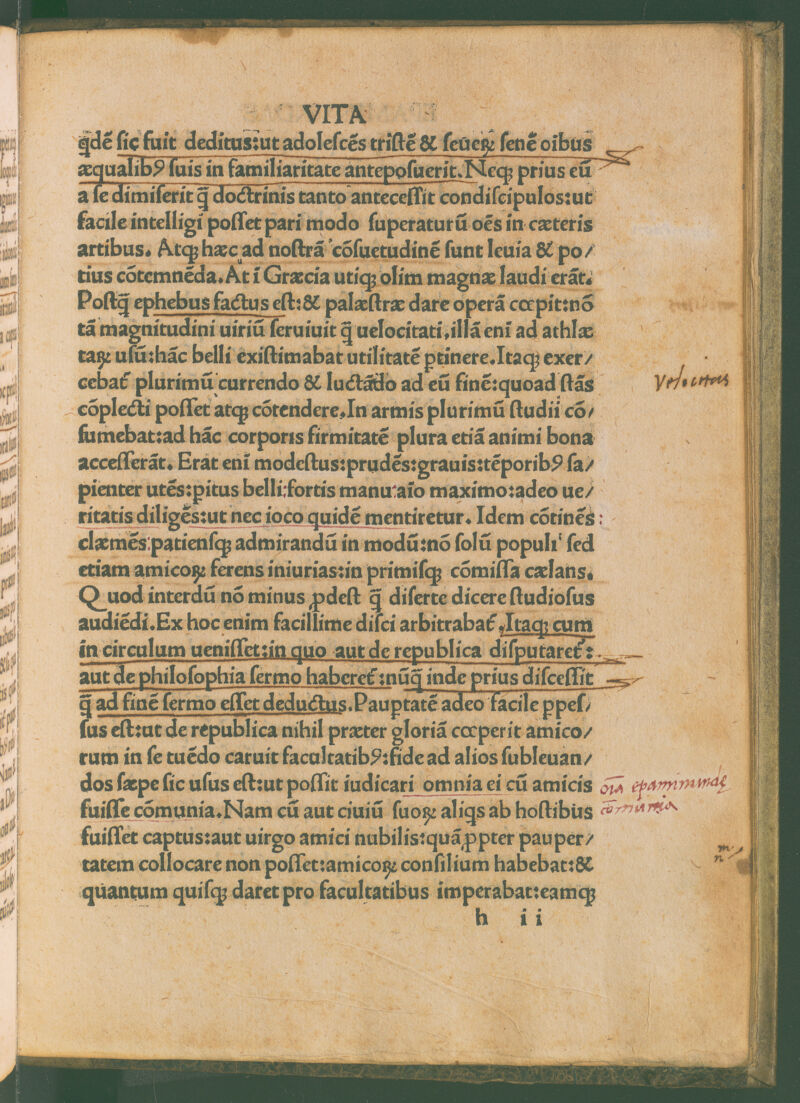 VITA
q̄dē ſic fuit deditus:ut adoleſcēs triſtē & ſeueꝝ ſenē oibus
æqualibꝰ ſuis in familiaritate antepoſuerit.Neqꝫ prius eū
a ſe dimiſerit q̄ doctrinis tanto anteceſſit condiſcipulos:ut
facile intelligi poſſet pari modo ſuperaturū oēs in cæteris
artibus. Atqꝫ hæc ad noſtrā cōſuetudinē ſunt leuia & po/
tius cōtemnēda.At ī Græcia utiqꝫ olim magnæ laudi erāt.
Poſtq̄ ephebus factus eſt:& palæſtræ dare operā cœpit:nō
tā magnitudini uiriū ſeruiuit q̄ uelocitati,illā enī ad athlæ
taꝝ uſū:hāc belli exiſtimabat utilitatē ꝑtinere.Itaqꝫ exer/
cebat̄ plurimū currendo & luctādo ad eū finē:quoad ſtās
cōplecti poſſet atqꝫ cōtendere.In armis plurimū ſtudii cō/
ſumebat:ad hāc corporis firmitatē plura etiā animi bona
acceſſerāt. Erat enī modeſtus:prudēs:grauis:tēporibꝰ ſa/
pienter utēs:ꝑitus belli:fortis manu:aīo maximo:adeo ue/
ritatis diligēs:ut nec ioco quidē mentiretur. Idem cōtinēs:
clæmēs:patienſqꝫ admirandū in modū:nō ſolū populi ſed
etiam amicoꝝ ferens iniurias:in primiſqꝫ cōmiſſa cælans.
Quod interdū nō minus ꝓdeſt q̄ diſerte dicere ſtudioſus
audiēdi.Ex hoc enim facillime diſci arbitrabat̄.Itaqꝫ cum
in circulum ueniſſet:in quo aut de republica diſputaret̄:
aut de philoſophia ſermo haberet̄:nūq̄ inde prius diſceſſit
q̄ ad finē ſermo eſſet deductus.Pauptatē adeo facile ꝑpeſ/
ſus eſt:ut de republica nihil præter gloriā cœperit amico/
rum in ſe tuēdo caruit facultatibꝰ:fide ad alios ſubleuan/
dos ſæpe ſic uſus eſt:ut poſſit iudicari omnia ei cū amicis
fuiſſe cōmunia.Nam cū aut ciuiū ſuoꝝ aliqs ab hoſtibus
fuiſſet captus:aut uirgo amici nubilis:quā ꝓpter pauper/
tatem collocare non poſſet:amicoꝝ conſilium habebat:&
quantum quiſqꝫ daret pro facultatibus imperabat:eamqꝫ
h ii
Velocitas
oīa epaminundę
cōmunia